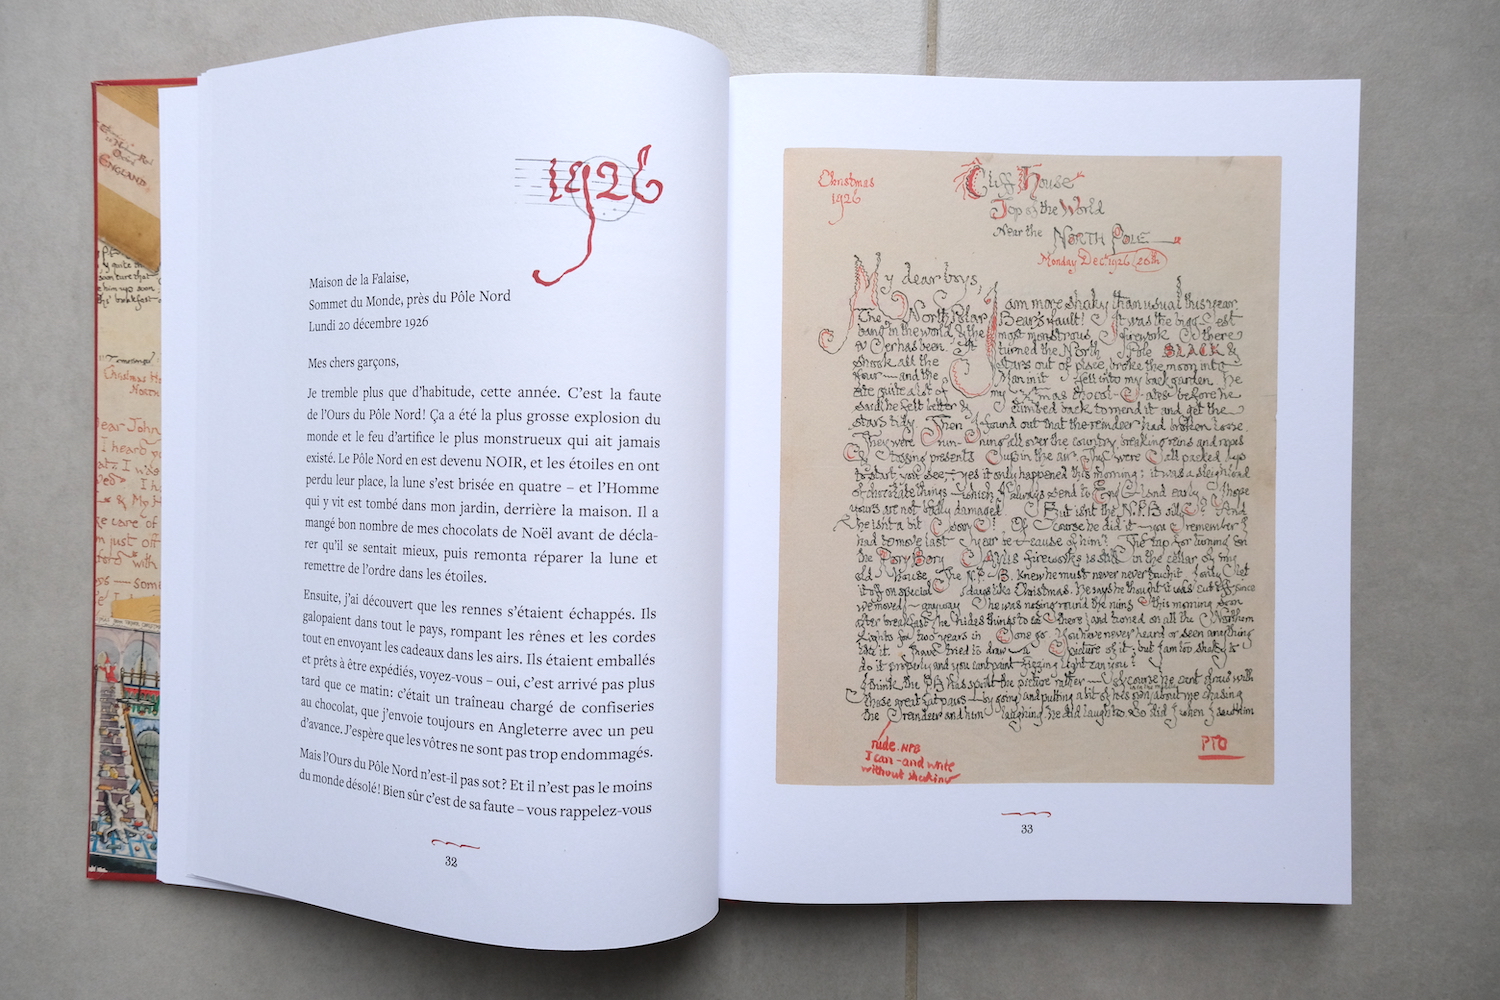 1926
Maison de la Falaise,
Sommet du Monde, près du Pôle Nord
Lundi 20 décembre 1926
Mes chers garçons,
Je tremble plus que d’habitude, cette année. C’est la faute
de l’Ours du Pôle Nord! Ça a été la plus grosse explosion du
monde et le feu d’artifice le plus monstrueux qui ait jamais
existé. Le Pôle Nord en est devenu NOIR, et les étoiles en ont
perdu leur place, la lune s’est brisée en quatre – et l’Homme
qui y vit est tombé dans mon jardin, derrière la maison. Il a
mangé bon nombre de mes chocolats de Noël avant de décla-
rer qu’il se sentait mieux, puis remonta réparer la lune et
remettre de l’ordre dans les étoiles.
Ensuite, j’ai découvert que les rennes s’étaient échappés. Ils
galopaient dans tout le pays, rompant les rênes et les cordes
tout en envoyant les cadeaux dans les airs. Ils étaient emballés
et prêts à être expédiés, voyez-vous – oui, c’est arrivé pas plus
tard que ce matin: c’était un traîneau chargé de confiseries
au chocolat, que j’envoie toujours en Angleterre avec un peu
d’avance. J’espère que les vôtres ne sont pas trop endommagés.
Mais l’Ours du Pôle Nord n’est-il pas sot? Et il n’est pas le moins
du monde désolé! Bien sûr c’est de sa faute – vous rappelez-vous
32
Christmas
1926
Cliff House
Top of the World
Near the NORTH POLE
Monday Dec 1926 20th
My dear boys,
I am more shaky than usual this year.
The North Polar Bear's fault! It was the biggest
bang in the world, & the most monstrous firework there
ever has been. It turned the North Pole BLACK &
shook all the stars out of place, broke the moon into
four — and the Man in it fell into my back garden. He
ate quite a lot of my Xmas chocolates before he
said he felt better & climbed back to mend it and get the
stars tidy. Then I found out that the reindeer had broken loose.
They were running all over the country, breaking reins and ropes
& tossing presents up in the air. They were all packed up
to start, you see, — yes it only happened this morning: it was a sleighload
of chocolate things — which I always send to England early. I hope
yours are not badly damaged. But isn't the N.P.B silly? And
he isn't a bit sorry! Of course he did it — you remember I
had to move last year because of him? The tap for turning on
the Rory Bory Aylis fireworks is still in the cellar of my
old house. The N.P.B. knew he must never never touch it. I only let
it off on special days like Christmas. He says he thought it was cut off since
we moved — anyway he was nosing round the ruins this morning soon
after breakfast (he hides things to eat there) and turned on all the Northern
Lights for two years in one go. You have never heard or seen anything
like it. I have tried to draw a picture of it; but I am too shaky to
do it properly and you can't paint fizzing light can you?
I think the PB has spoilt the picture rather — of course he can't draw with
those great fat paws — by going and putting a bit of his own about me chasing
the reindeer and him laughing. He did laugh too. So did I when I saw him
rude. NPB
I can – and write
without shaking
PTO
33
ENGLAND